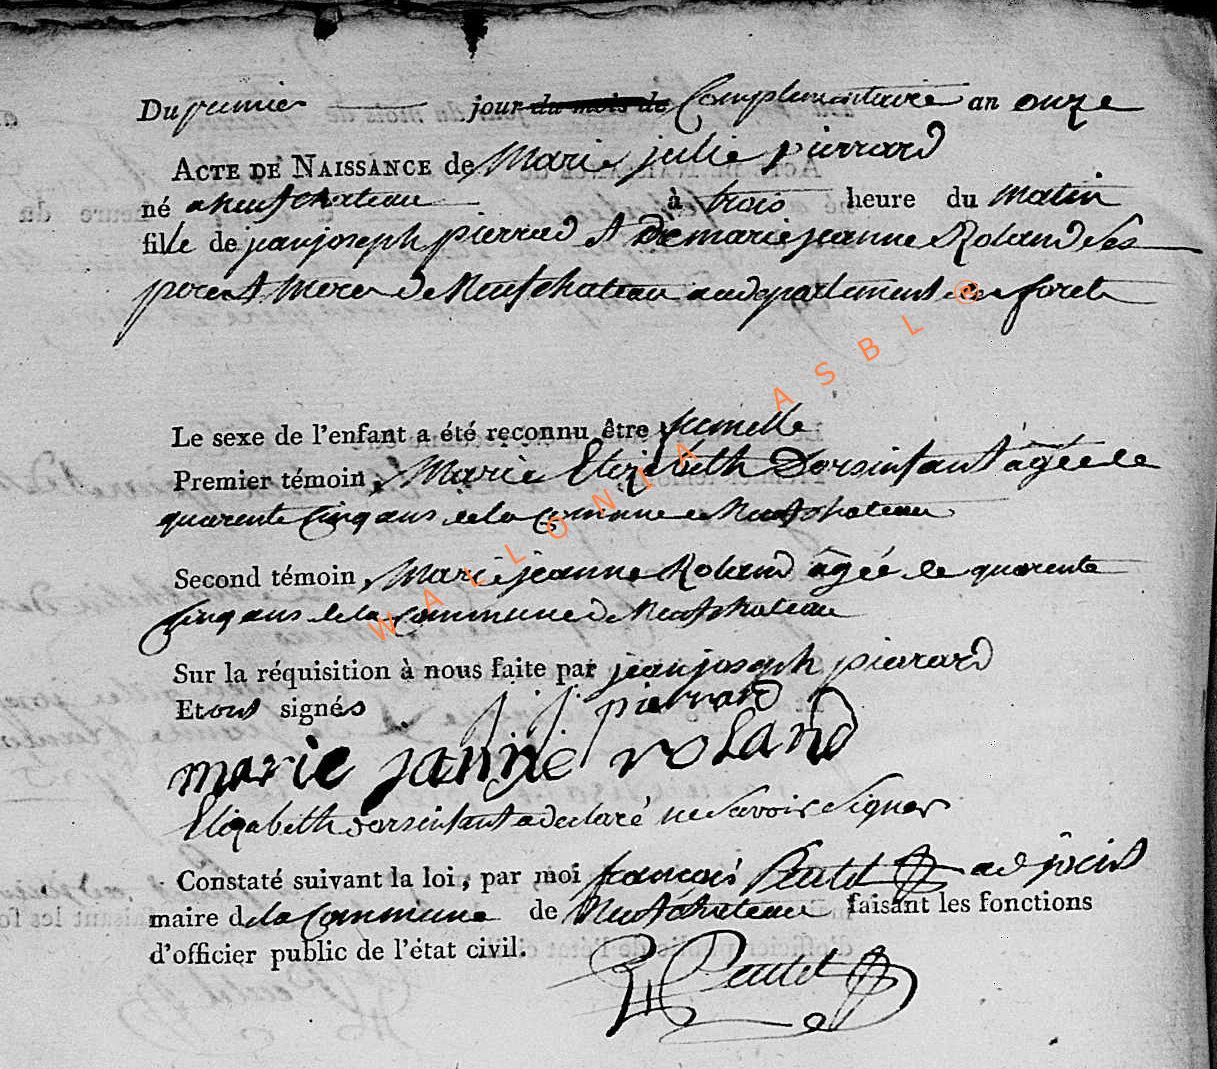 Du premier jour du mois de Complementaire an onze
ACTE DE NAISSANCE de Marie julie pierrard
né a neufchateau à trois heure du matin
fille de jean joseph pierrard et de marie jeanne Roland ses
pere et mere de Neufchateau au departement des forets
Le sexe de l'enfant a été reconnu être femelle
Premier témoin, Marie Elizebeth Dorsinfant âgée de
quarente cinq ans de la Commune de Neufchateau
Second témoin, Marie jeanne Roland âgée de quarente
cinq ans de la commune de Neufchateau
Sur la réquisition à nous faite par jean joseph pierrard
Et ont signés j j pierrard
marie janne roland
Elizabeth dorsinfant a declaré ne savoir signer
Constaté suivant la loi, par moi françois adjoint
maire de la Commune de Neufchateau faisant les fonctions
d'officier public de l'état civil.
WALLONIA ASBL @